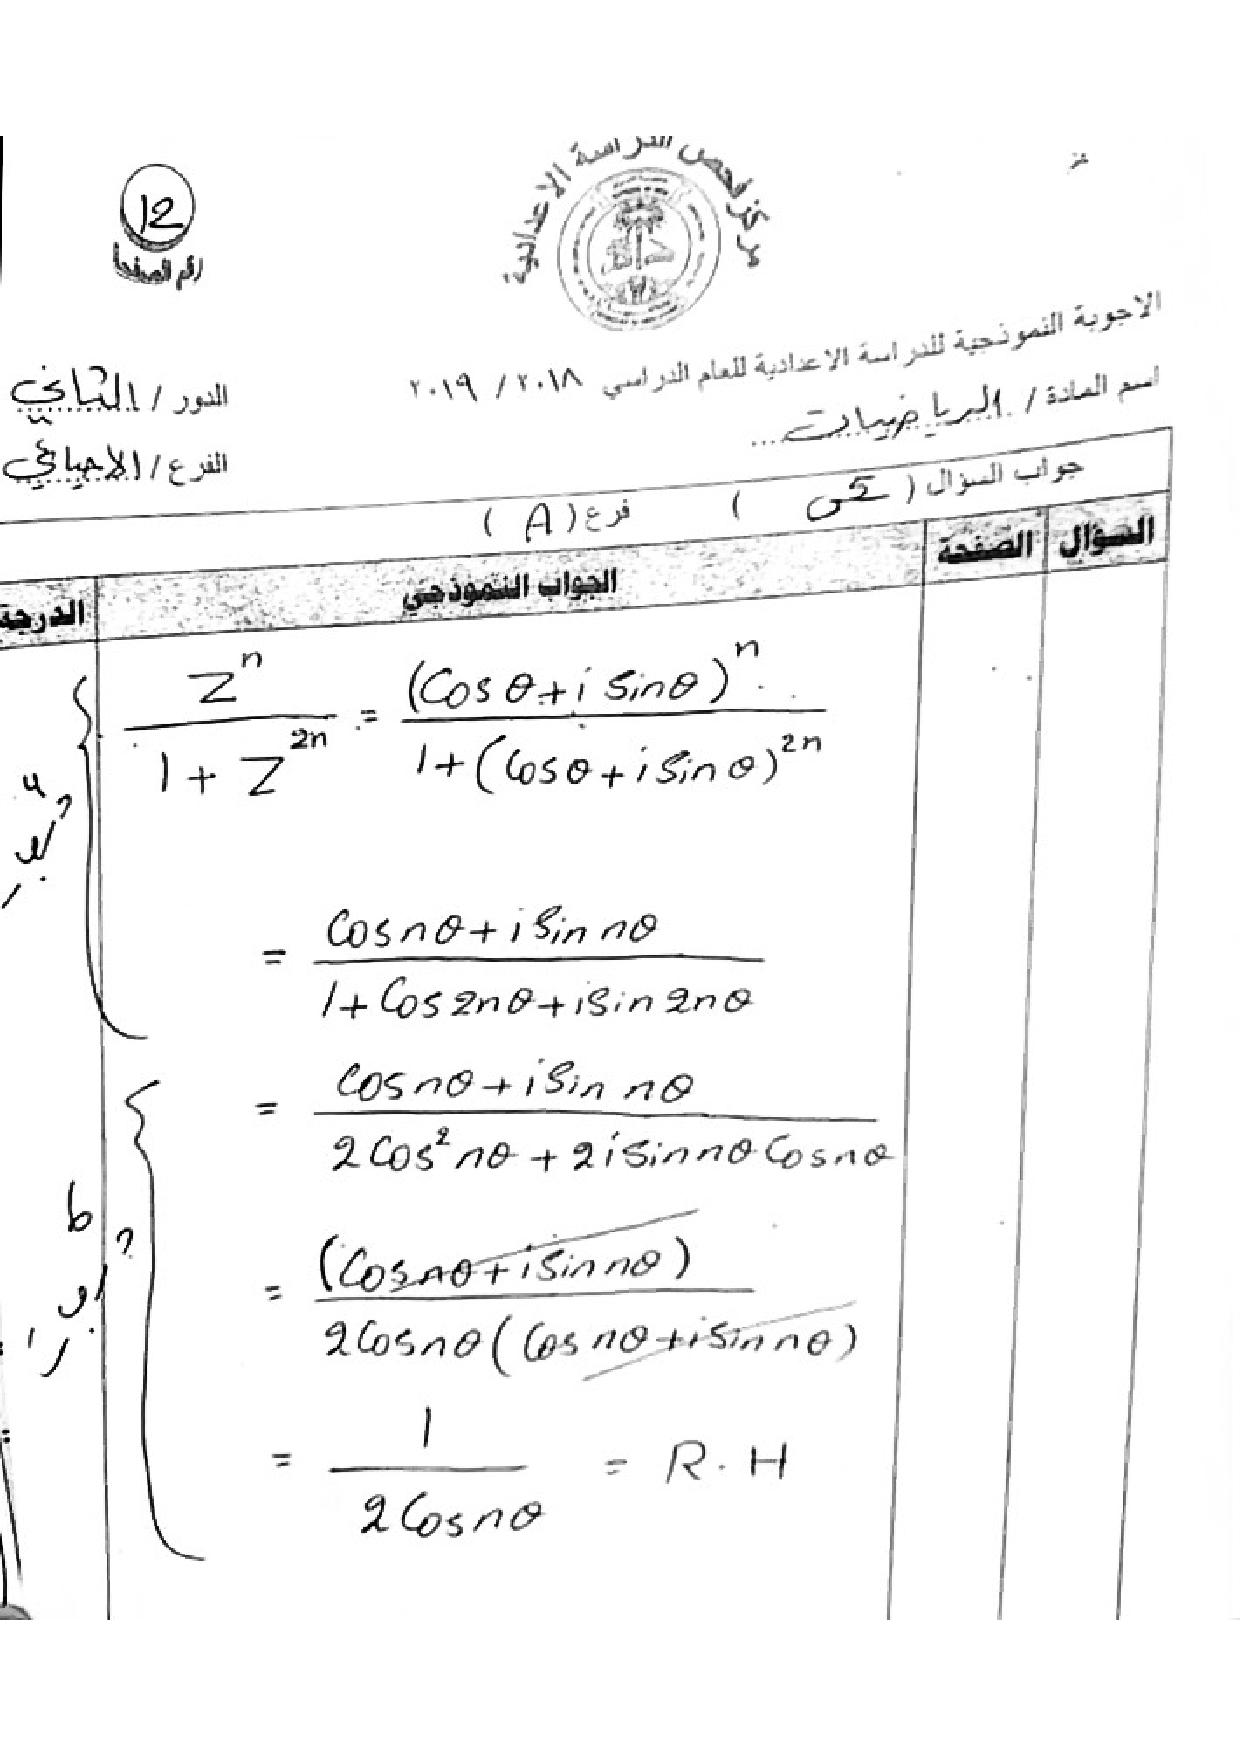 12
رقم الصفحة
مركز فحص الدراسة الاعدادية
الاجوبة النموذجية للدراسة الاعدادية للعام الدراسي ٢٠١٨ / ٢٠١٩
اسم المادة / الرياضيات
الدور / الثاني
الفرع / الاحيائي
جواب السؤال ( ) فرع ( A )
السؤال الصفحة الجواب النموذجي الدرجة
Z^n / (1 + Z^2n) = (Cos θ + i Sin θ)^n / (1 + (Cos θ + i Sin θ)^2n)
= (Cos nθ + i Sin nθ) / (1 + Cos 2nθ + i Sin 2nθ)
= (Cos nθ + i Sin nθ) / (2 Cos² nθ + 2 i Sin nθ Cos nθ)
= (Cos nθ + i Sin nθ) / (2 Cos nθ (Cos nθ + i Sin nθ))
= 1 / (2 Cos nθ) = R.H